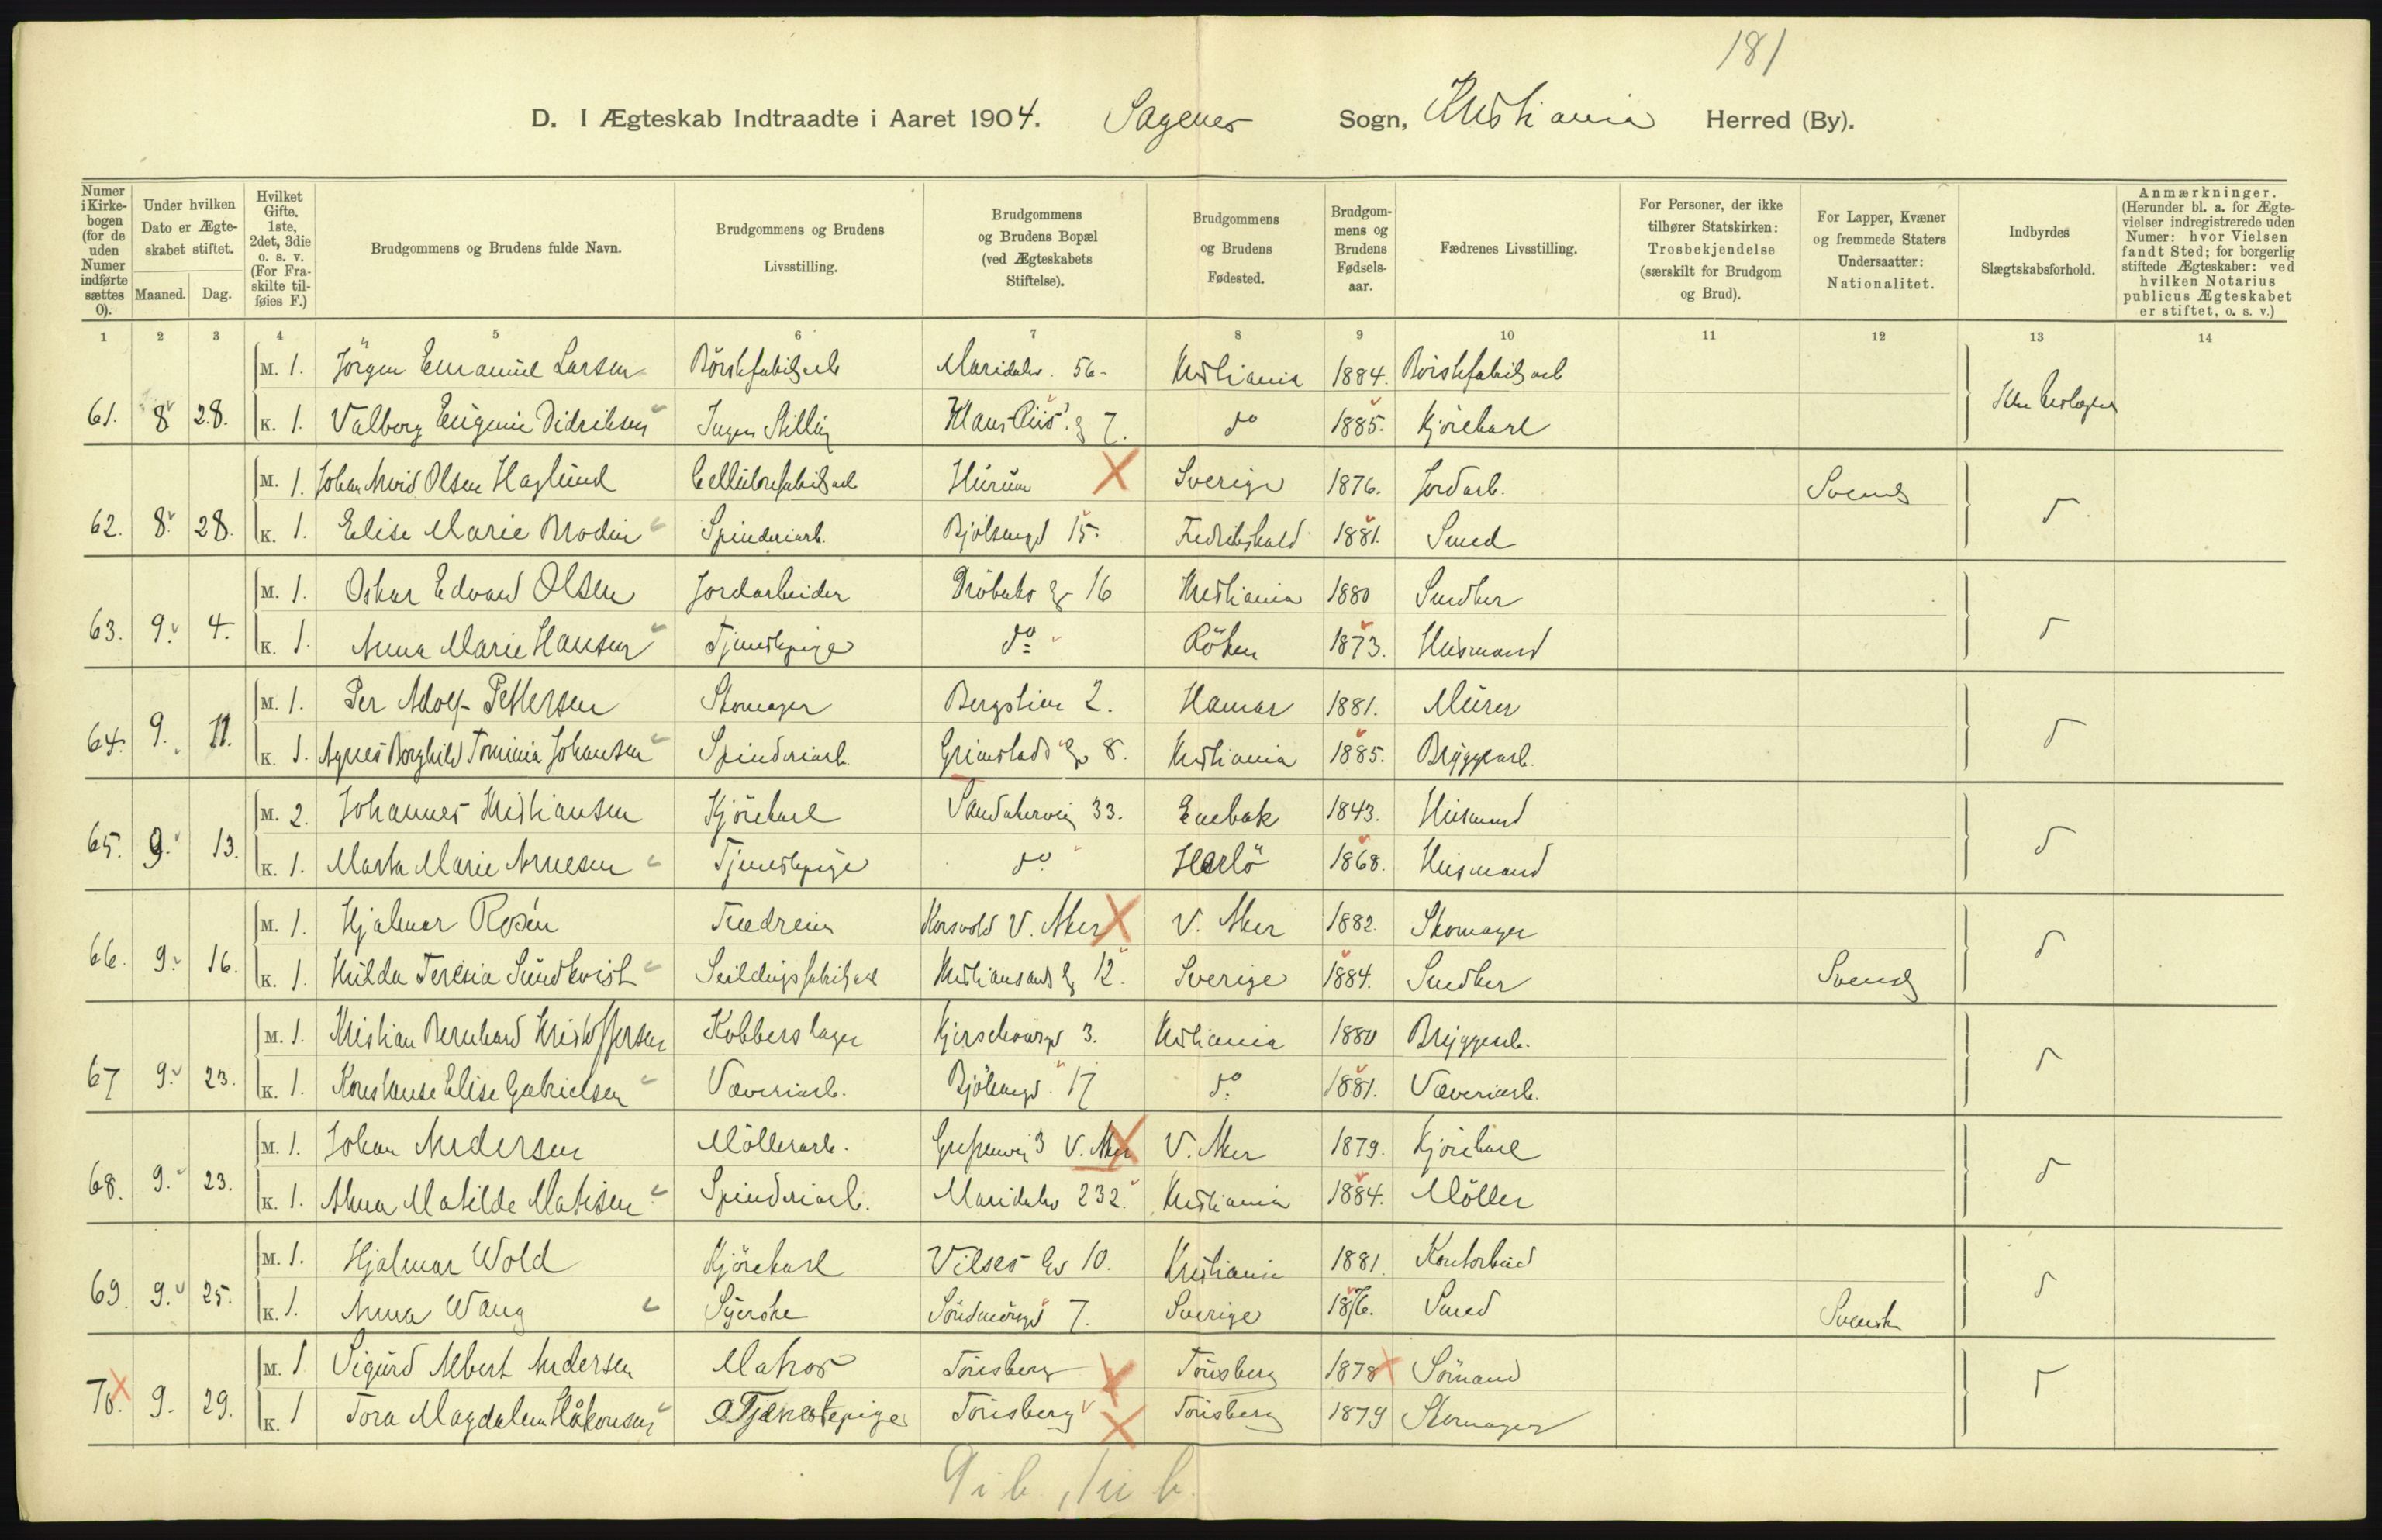 181
D. I Ægteskab Indtraadte i Aaret 1904. Sagenes Sogn, Kristiania Herred (By).
Numer i Kirkebogen (for de uden Numer indførte sættes 0).
Under hvilken Dato er Ægteskabet stiftet.
Maaned. Dag.
Hvilket Gifte. 1ste, 2det, 3die o. s. v. (For Fraskilte tilføies F.)
Brudgommens og Brudens fulde Navn.
Brudgommens og Brudens Livsstilling.
Brudgommens og Brudens Bopæl (ved Ægteskabets Stiftelse).
Brudgommens og Brudens Fødested.
Brudgommens og Brudens Fødselsaar.
Fædrenes Livsstilling.
For Personer, der ikke tilhører Statskirken: Trosbekjendelse (særskilt for Brudgom og Brud).
For Lapper, Kvæner og fremmede Staters Undersaatter: Nationalitet.
Indbyrdes Slægtskabsforhold.
Anmærkninger. (Herunder bl. a. for Ægtevielser indregistrerede uden Numer: hvor Vielsen fandt Sted; for borgerlig stiftede Ægteskaber: ved hvilken Notarius publicus Ægteskabet er stiftet, o. s. v.)
1 2 3 4 5 6 7 8 9 10 11 12 13 14
M. 1. Jörgen Emanuel Larsen Börstefabriksarb Maridalsv. 56 Kristiania 1884. Börstefabriksarb
61. 8 28. K. 1. Valborg Eugenie Didriksen Ingen Stilling Klaus Riis' g 7. do 1885. Kjörekarl
M. 1. Johan Arvid Olsen Haglund Cellulosefabriksarb Hurum Sverige 1876. Jordarb. Svensk
62. 8. 28. K. 1. Elise Marie Brodin Spinderiarb. Bjölsengd 15. Fredrikshald 1881. Smed
M. 1. Oskar Edvard Olsen Jordarbeider Dröbaks g 16 Kristiania 1880 Snedker
63. 9. 4. K. 1. Anna Marie Hansen Tjenestepige do Röken 1873. Husmand
M. 1. Per Adolf Pettersen Skomager Bergslien 2. Hamar 1881. Murer
64. 9. 11. K. 1. Agnes Borghild Tominia Johansen Spinderiarb. Grimstads g 8. Kristiania 1885. Bryggearb.
M. 2. Johannes Kristiansen Kjörekarl Sandakervei 33. Enebak 1843. Husmand
65. 9. 13. K. 1. Marta Marie Arnesen Tjenestepige do. Herlö 1868. Husmand
M. 1. Hjalmar Rosén Trædreier Korsvold V. Aker V. Aker 1882. Skomager
66. 9. 16. K. 1. Hilda Teresia Sundkvist Seildugsfabriksarb Kristiansands g 12. Sverige 1884. Snedker Svensk
M. 1. Kristian Bernhard Kristoffersen Kobberslager Kjerschowsgd 3. Kristiania 1880 Bryggearb.
67 9. 23. K. 1. Konstanse Elise Gabrielsen Væveriarb. Bjölsengd. 17 do. 1881. Væveriarb.
M. 1. Johan Andersen Möllerarb. Grefsenvei 3 V. Aker V. Aker 1879. Kjörekarl
68. 9. 23. K. 1. Anna Matilde Matisen Spinderiarb. Maridalsv 232. Kristiania 1884. Möller
M. 1. Hjalmar Wold Kjörekarl Vilses g 10. Kristiania 1881. Kontorbud
69. 9. 25. K. 1. Anna Wang Syerske Söndmörsgd 7. Sverige 1876. Smed Svensk
M. 1 Sigurd Albert Andersen Matros Tönsberg Tönsberg 1878 Sömand
70. 9. 29. K. 1 Tora Magdalena Håkonsen Tjenestepige Tönsberg Tönsberg 1879 Skomager
9 i b, 1 u b.